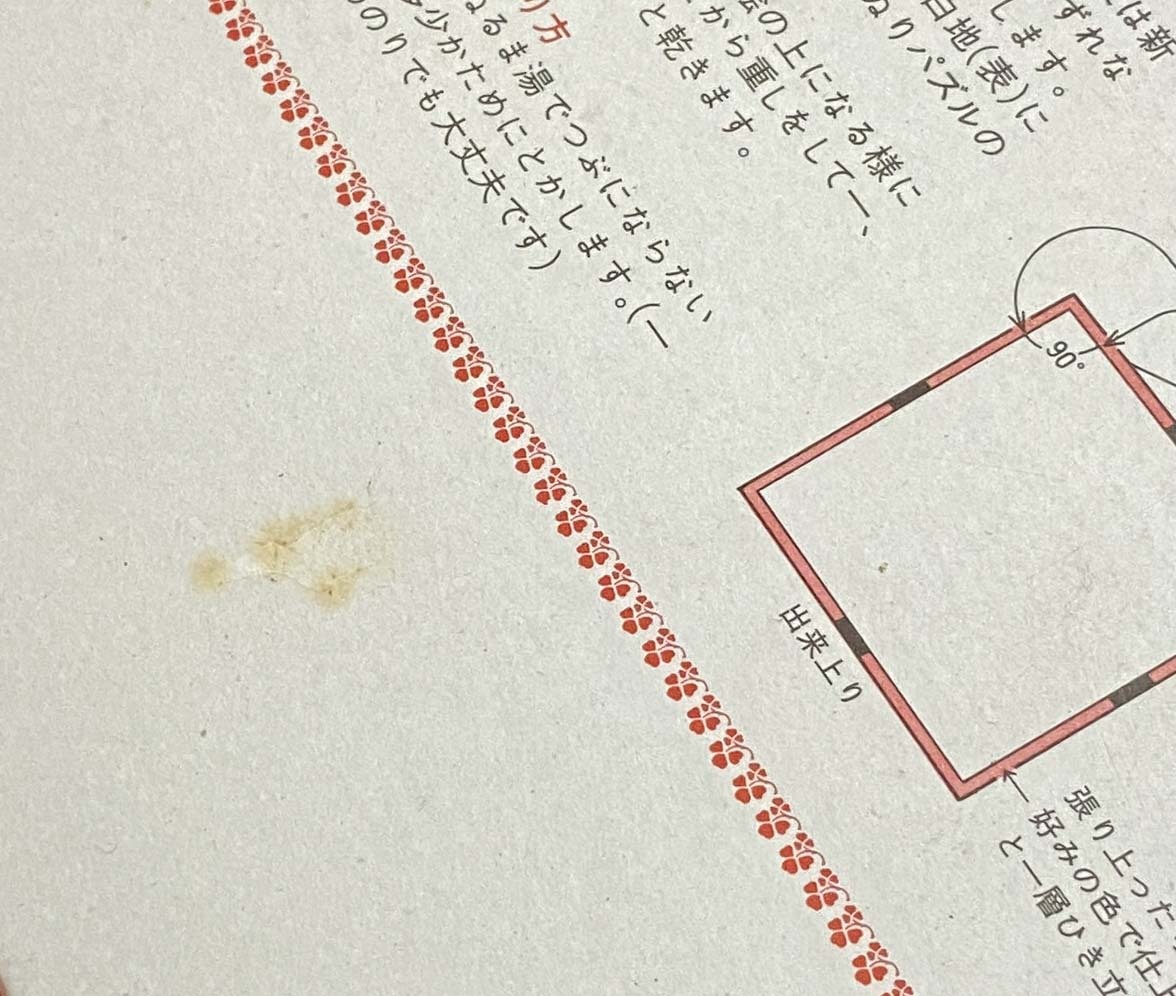 は新
ずれな
します。
白地(表)に
ぬりパズルの
絵の上になる様に
から重しをして一、
と乾きます。
り方
ぬるま湯でつぶにならない
多少かためにとかします。(一
のりでも大丈夫です)
90°
出来上り
張り上った
好みの色で仕上
と一層ひき立